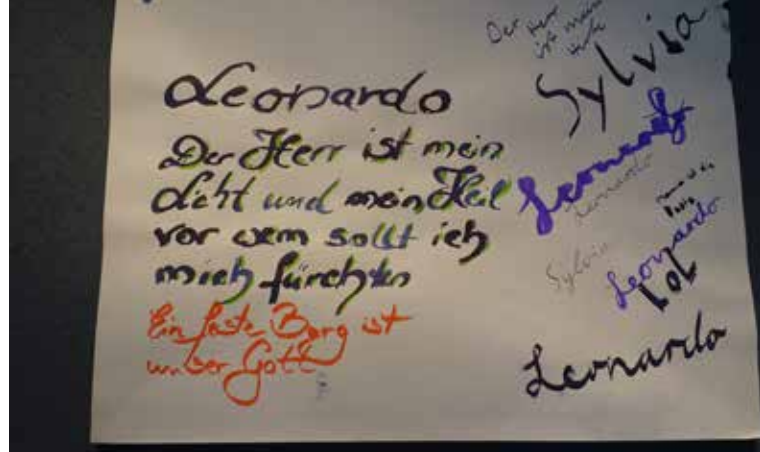 Leonardo
Der Herr ist mein
Licht und mein Heil
vor wem sollt ich
mich fürchten
Ein feste Burg ist
unser Gott
Der Herr
ist mein
Sylvia
Leonardo
Leonardo
Sylvia
Leonardo
LOL
Leonardo